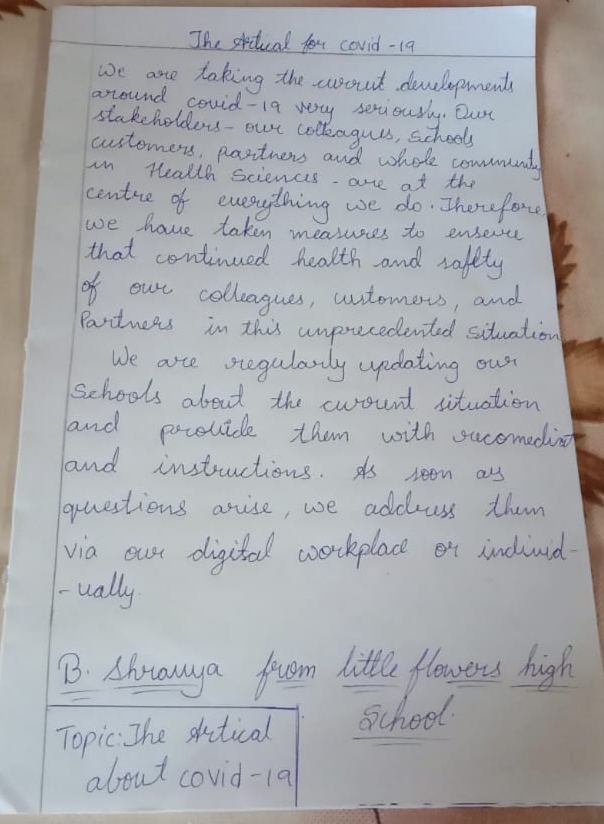 The Artical for covid -19
We are taking the current developments
around covid-19 very seriously. Our
stakeholders - our colleagues, Schools
customers, partners and whole community
in Health Sciences - are at the
centre of everything we do. Therefore
we have taken measures to enseure
that continued health and safety
of our colleagues, customers, and
Partners in this unprecedented situation
We are regularly updating our
Schools about the current situation
and provide them with
and instructions. As soon as
questions arise, we address them
via our digital workplace or individ-
-ually.
B. Shranya from little flowers high
School.
Topic: The Artical
about covid-19